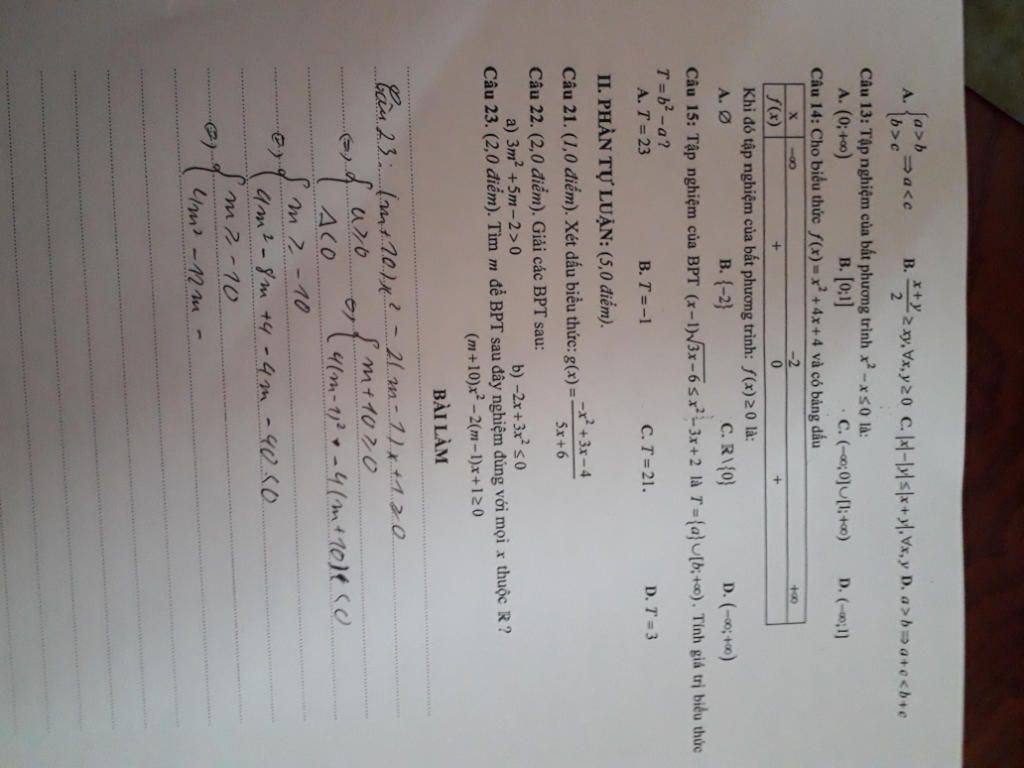 A. { a > b
b > c ⇒ a < c B. (x + y)/2 ≥ xy, ∀x, y ≥ 0 C. |x| − |y| ≤ |x + y|, ∀x, y D. a > b ⇒ a + c < b + c
Câu 13: Tập nghiệm của bất phương trình x² − x ≤ 0 là:
A. (0; +∞) B. [0;1] C. (−∞;0] ∪ [1; +∞) D. (−∞;1]
Câu 14: Cho biểu thức f(x) = x² + 4x + 4 và có bảng dấu
x −∞ −2 +∞
f(x) + 0 +
Khi đó tập nghiệm của bất phương trình: f(x) ≥ 0 là:
A. ∅ B. {−2} C. ℝ \ {0} D. (−∞; +∞)
Câu 15: Tập nghiệm của BPT (x − 1)√(3x − 6) ≤ x² − 3x + 2 là T = {a} ∪ [b; +∞). Tính giá trị biểu thức
T = b² − a ?
A. T = 23 B. T = −1 C. T = 21. D. T = 3
II. PHẦN TỰ LUẬN: (5,0 điểm).
Câu 21. (1,0 điểm). Xét dấu biểu thức: g(x) = (−x² + 3x − 4)/(5x + 6)
Câu 22. (2,0 điểm). Giải các BPT sau:
a) 3m² + 5m − 2 > 0 b) −2x + 3x² ≤ 0
Câu 23. (2,0 điểm). Tìm m để BPT sau đây nghiệm đúng với mọi x thuộc ℝ ?
(m + 10)x² − 2(m − 1)x + 1 ≥ 0
BÀI LÀM
Câu 23: (m + 10)x² − 2(m − 1)x + 1 ≥ 0
⇔ { a > 0 ⇔ { m + 10 ≥ 0
Δ < 0 4(m − 1)² − 4(m + 10) < 0
⇔ { m ≥ −10
4m² − 8m + 4 − 4m − 40 ≤ 0
⇔ { m ≥ −10
4m² − 12m −